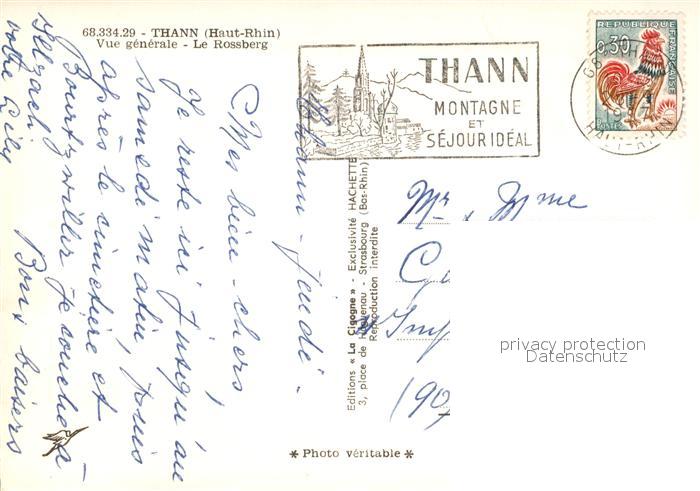 68.334.29 - THANN (Haut-Rhin)
Vue générale - Le Rossberg
THANN
MONTAGNE
ET
SÉJOUR IDÉAL
REPUBLIQUE FRANÇAISE
0,30
Postes
HAUT-RHIN
Thann - jeudi -
Mes bien - chers,
Je reste ici jusqu'au
samedi matin, puis
après le cimetière et
Bourtzwiller je couche à
Selzach Bons baisers
votre Lily
Editions « La Cigogne » - Exclusivité HACHETTE
3, place de Haguenau - Strasbourg (Bas-Rhin)
Reproduction interdite
Mr & Mme
privacy protection
Datenschutz
* Photo véritable *